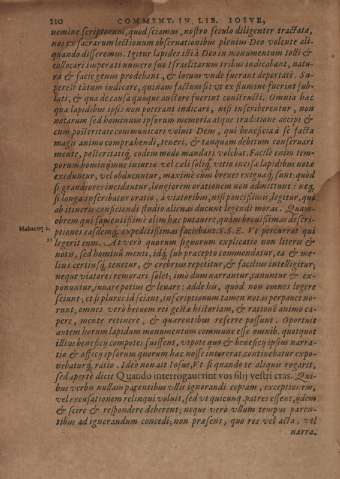 210 COMMENT. IN LIB. IOSVE,
nemine scriptorum, quod sciamus, nostro seculo diligenter tractata,
nos ex sacrarum lectionum obseruationibus plenius Deo volente ali-
quando disseremus. Igitur lapides isti à Deo in monumentum tolli &
collocari imperati numero suo Israelitarum tribus indicabant, natu-
ra & facie genus prodebant, & locum vnde fuerant deportati. Su-
pererat tantùm indicare, quónam factum sit vt ex flumine fuerint sub-
lati, & qua de causa quóque auctore fuerint constituti. Omnia hæc
qua lapidibus ipsis non poterant indicari, nisi inscriberentur, non
natarum sed hominum ipsorum memoria atque traditione accipi &
cum posteritate communicari voluit Deus, qui beneficia à se facta
magis animo comprehendi, teneri, & tanquam debitum conseruari
mente, posteritatíq; eadem modo mandari volebat. Facilè enim tem-
porum hominúmue iniuria vel casu saxisq; vetis incisa lapidibus nota
exeduntur, vel obducuntur, maximè cùm breues exiguaq; sunt: quòd
si grandiores incidantur, longiorem orationem non admittunt: neq;
si longa inscribatur oratio, à viatoribus, nisi paucissimis, legitur, qui
ab itineris conficiendi studio alienas ducunt legendi moras. Quam-
obrem qui sapientissimè olim hac putauere, quàm breuissimas descri-
ptiones easdemq; expeditissimas faciebant. S. S. E. Vt percurrat qui
Habacuc 2.
legerit eum. At verò quarum signorum explicatio non literis &
notis, sed hominũ menti, idq; sub præcepto commendatur, ea & me-
lius certiúsq; tenetur, & crebrius repetitur, & facilius intelligitur,
neque viatores remorari solet, imo dum narratur, eunt &
ponuntur, iuuare potius & leuare: adde his, quòd non omnes legere
sciunt, et si plures id sciant, inscriptionum tamen notas perpauci no-
runt, omnes verò breuem rei gesta historiam, & rationẽ animo ca-
pere, mente retinere, & quarentibus referre possunt. Oportuit
autem horum lapidum monumentum commune esse omnib. quotquot
illius beneficij compotes fuissent, vtpote quo & beneficij ipsius narra-
tio & officij ipsorum quorum hac nosse intererat, continebatur expo-
nebaturq; ratio. Ideo non ait Iosue, Vt si quando te aliquis rogarit,
sed apertè dicit Quando interrogauerint vos filij vestri cras. Qui-
bus verbis nullam parentibus vllis ignorandi copiam, exceptionem,
vel excusationem relinqui voluit, sed vt quicunq; patres essent, ijdem
& scire & respondere deberent: neque verò vllum tempus paren-
tibus ad ignorandum concedi; non præsens, quo res vel acta, vel
narra-